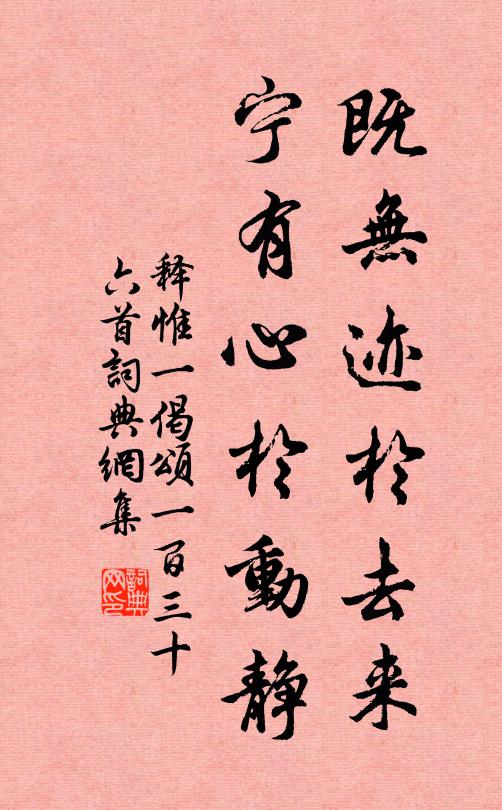 既無迹於去来
宁有心於動静
释惟一偈頌一百三十
六首詞典網集
詞典網印